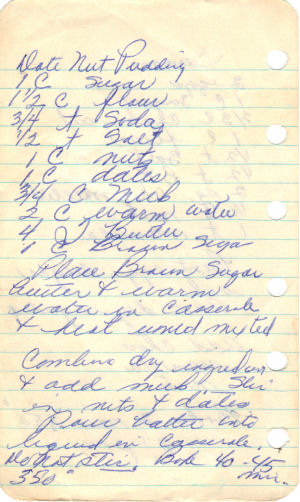 Date Nut Pudding
1 C Sugar
1 1/2 C flour
3/4 t Soda
1/2 t Salt
1 C nuts
1 C dates
3/4 C Milk
2 C warm water
4 T Butter
1 C Brown Suga
Place Brown Sugar
butter & warm
water in Casserole
& heat until melted
Combine dry ingredien
& add milk Stir
in nuts & dates
Pour batter into
liquid in Casserole.
Do Not Stir. Bake 40-45
350° min.